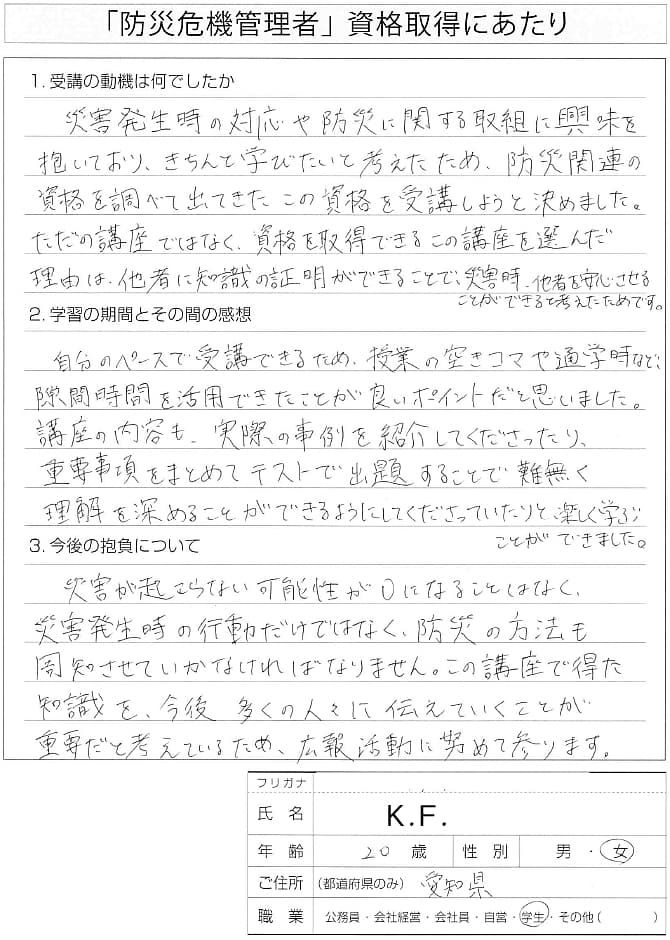 「防災危機管理者」資格取得にあたり
1. 受講の動機は何でしたか
災害発生時の対応や防災に関する取組に興味を
抱いており、きちんと学びたいと考えたため、防災関連の
資格を調べて出てきたこの資格を受講しようと決めました。
ただの講座ではなく、資格を取得できるこの講座を選んだ
理由は、他者に知識の証明ができることで、災害時、他者を安心させる
ことができると考えたためです。
2. 学習の期間とその間の感想
自分のペースで受講できるため、授業の空きコマや通学時など、
隙間時間を活用できたことが良いポイントだと思いました。
講座の内容も、実際の事例を紹介してくださったり、
重要事項をまとめてテストで出題することで難無く
理解を深めることができるようにしてくださっていたりと、楽しく学ぶ
ことができました。
3. 今後の抱負について
災害が起こらない可能性が0になることはなく、
災害発生時の行動だけではなく、防災の方法も
周知させていかなければなりません。この講座で得た
知識を、今後多くの人々に伝えていくことが
重要だと考えているため、広報活動に努めて参ります。
フリガナ
氏名 K.F.
年齢 20 歳 性別 男・女
ご住所 (都道府県のみ) 愛知県
職業 公務員・会社経営・会社員・自営・学生・その他( )